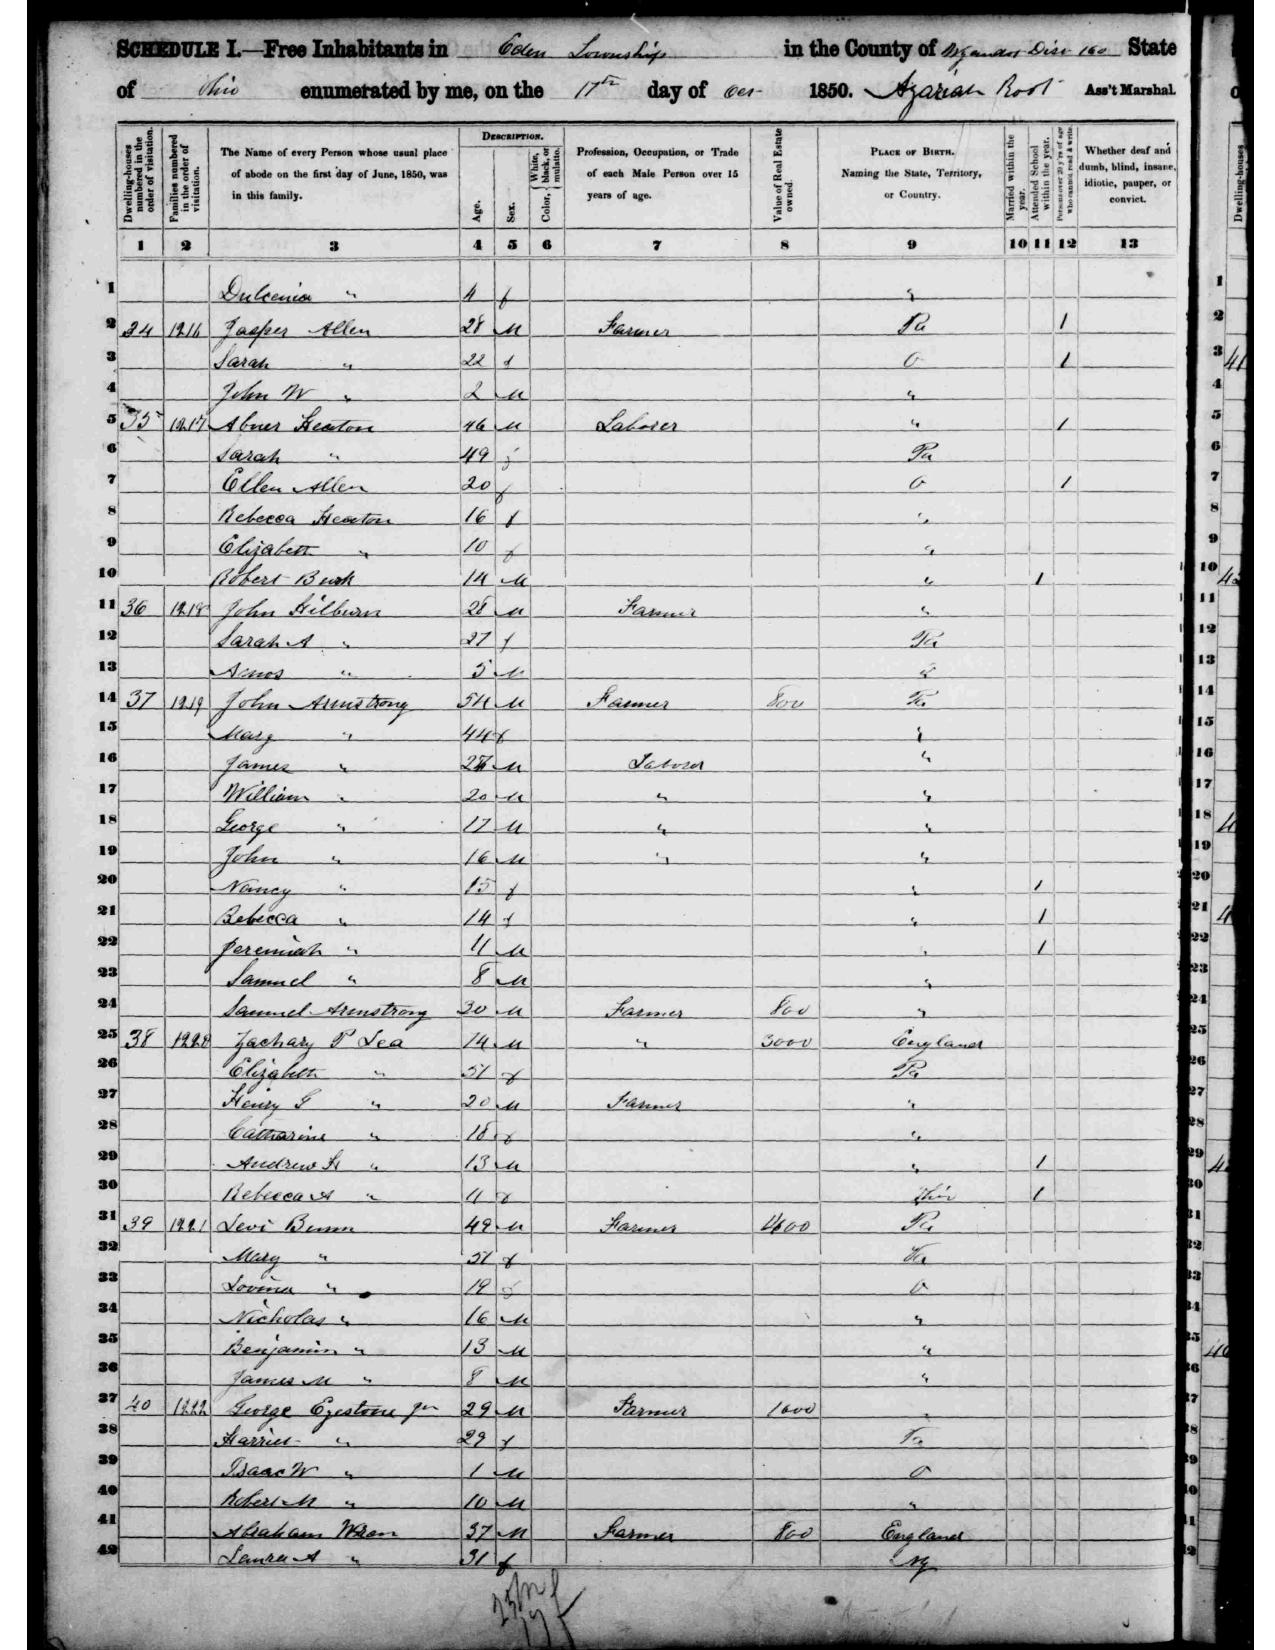 SCHEDULE I.—Free Inhabitants in Eden Township in the County of Wyandot Dist 160 State
of Ohio enumerated by me, on the 17th day of Oct 1850. Azariah Root Ass't Marshal.
Dwelling-houses numbered in the order of visitation.
Families numbered in the order of visitation.
The Name of every Person whose usual place of abode on the first day of June, 1850, was in this family.
DESCRIPTION.
Age.
Sex.
Color, White, black, or mulatto.
Profession, Occupation, or Trade of each Male Person over 15 years of age.
Value of Real Estate owned.
PLACE OF BIRTH. Naming the State, Territory, or Country.
Married within the year.
Attended School within the year.
Persons over 20 y'rs of age who cannot read & write.
Whether deaf and dumb, blind, insane, idiotic, pauper, or convict.
1 2 3 4 5 6 7 8 9 10 11 12 13
1 Dulcenia " 4 f "
2 34 1216 Jasper Allen 28 M Farmer Pa 1
3 Sarah " 22 f O 1
4 John W " 2 M "
5 35 1217 Abner Heaton 46 M Laborer " 1
6 Sarah " 49 f Pa
7 Ellen Allen 20 f O 1
8 Rebecca Heaton 16 f "
9 Elizabeth " 10 f "
10 Robert Burk 14 M " 1
11 36 1218 John Hilburn 28 M Farmer "
12 Sarah A " 27 f Pa
13 Amos " 5 M
14 37 1219 John Armstrong 54 M Farmer 800 Pa
15 Mary " 44 f "
16 James " M Laborer "
17 William " 20 M " "
18 George " 17 M " "
19 John " 16 M " "
20 Nancy " 15 f " 1
21 Rebecca " 14 f " 1
22 Jeremiah " 11 M " 1
23 Samuel " 8 M "
24 Samuel Armstrong 30 M Farmer 800 "
25 38 1220 Zachary P Lea 14 M " 3000 England
26 Elizabeth " 51 f Pa
27 Henry G " 20 M Farmer "
28 Catharine " 18 f "
29 Andrew H " 13 M " 1
30 Rebecca A " 11 f Ohio 1
31 39 1221 Levi Bunn 49 M Farmer Pa
32 Mary " 51 f Va
33 Lovina " 19 f O
34 Nicholas " 16 M "
35 Benjamin " 13 M "
36 James M " 8 M "
37 40 1222 George Ezestone Jun 29 M Farmer 1000 "
38 Harriet " 29 f
39 Isaac W " 1 M O
40 Robert M " 10 M "
41 Abraham Wren 37 M Farmer 800 England
42 Laura A " 31 f NY